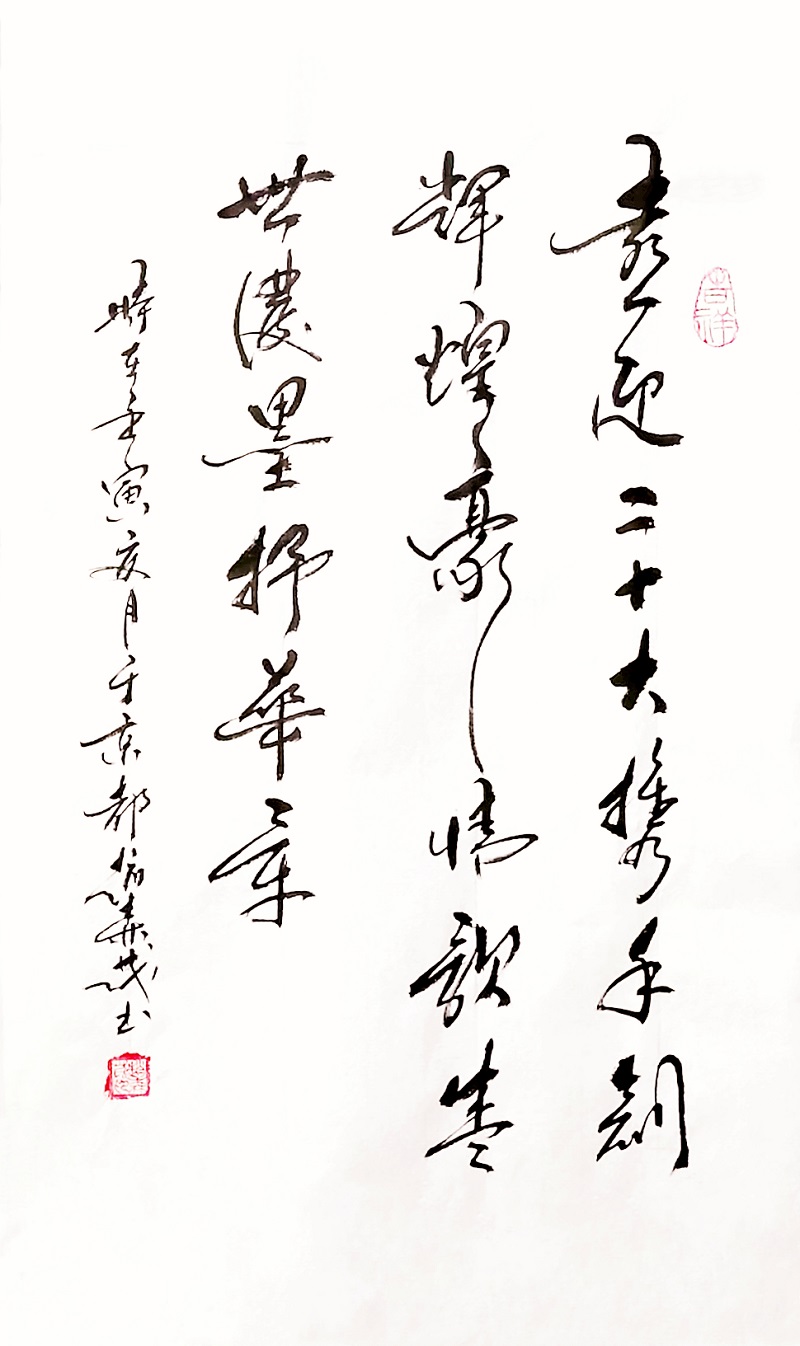 吉祥
喜迎二十大携手創
輝煌豪情歌盛
世濃墨抒華章
時在壬寅亥月于京都 書